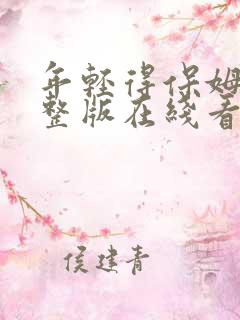 年轻得保姆
整版在线看
侯建青